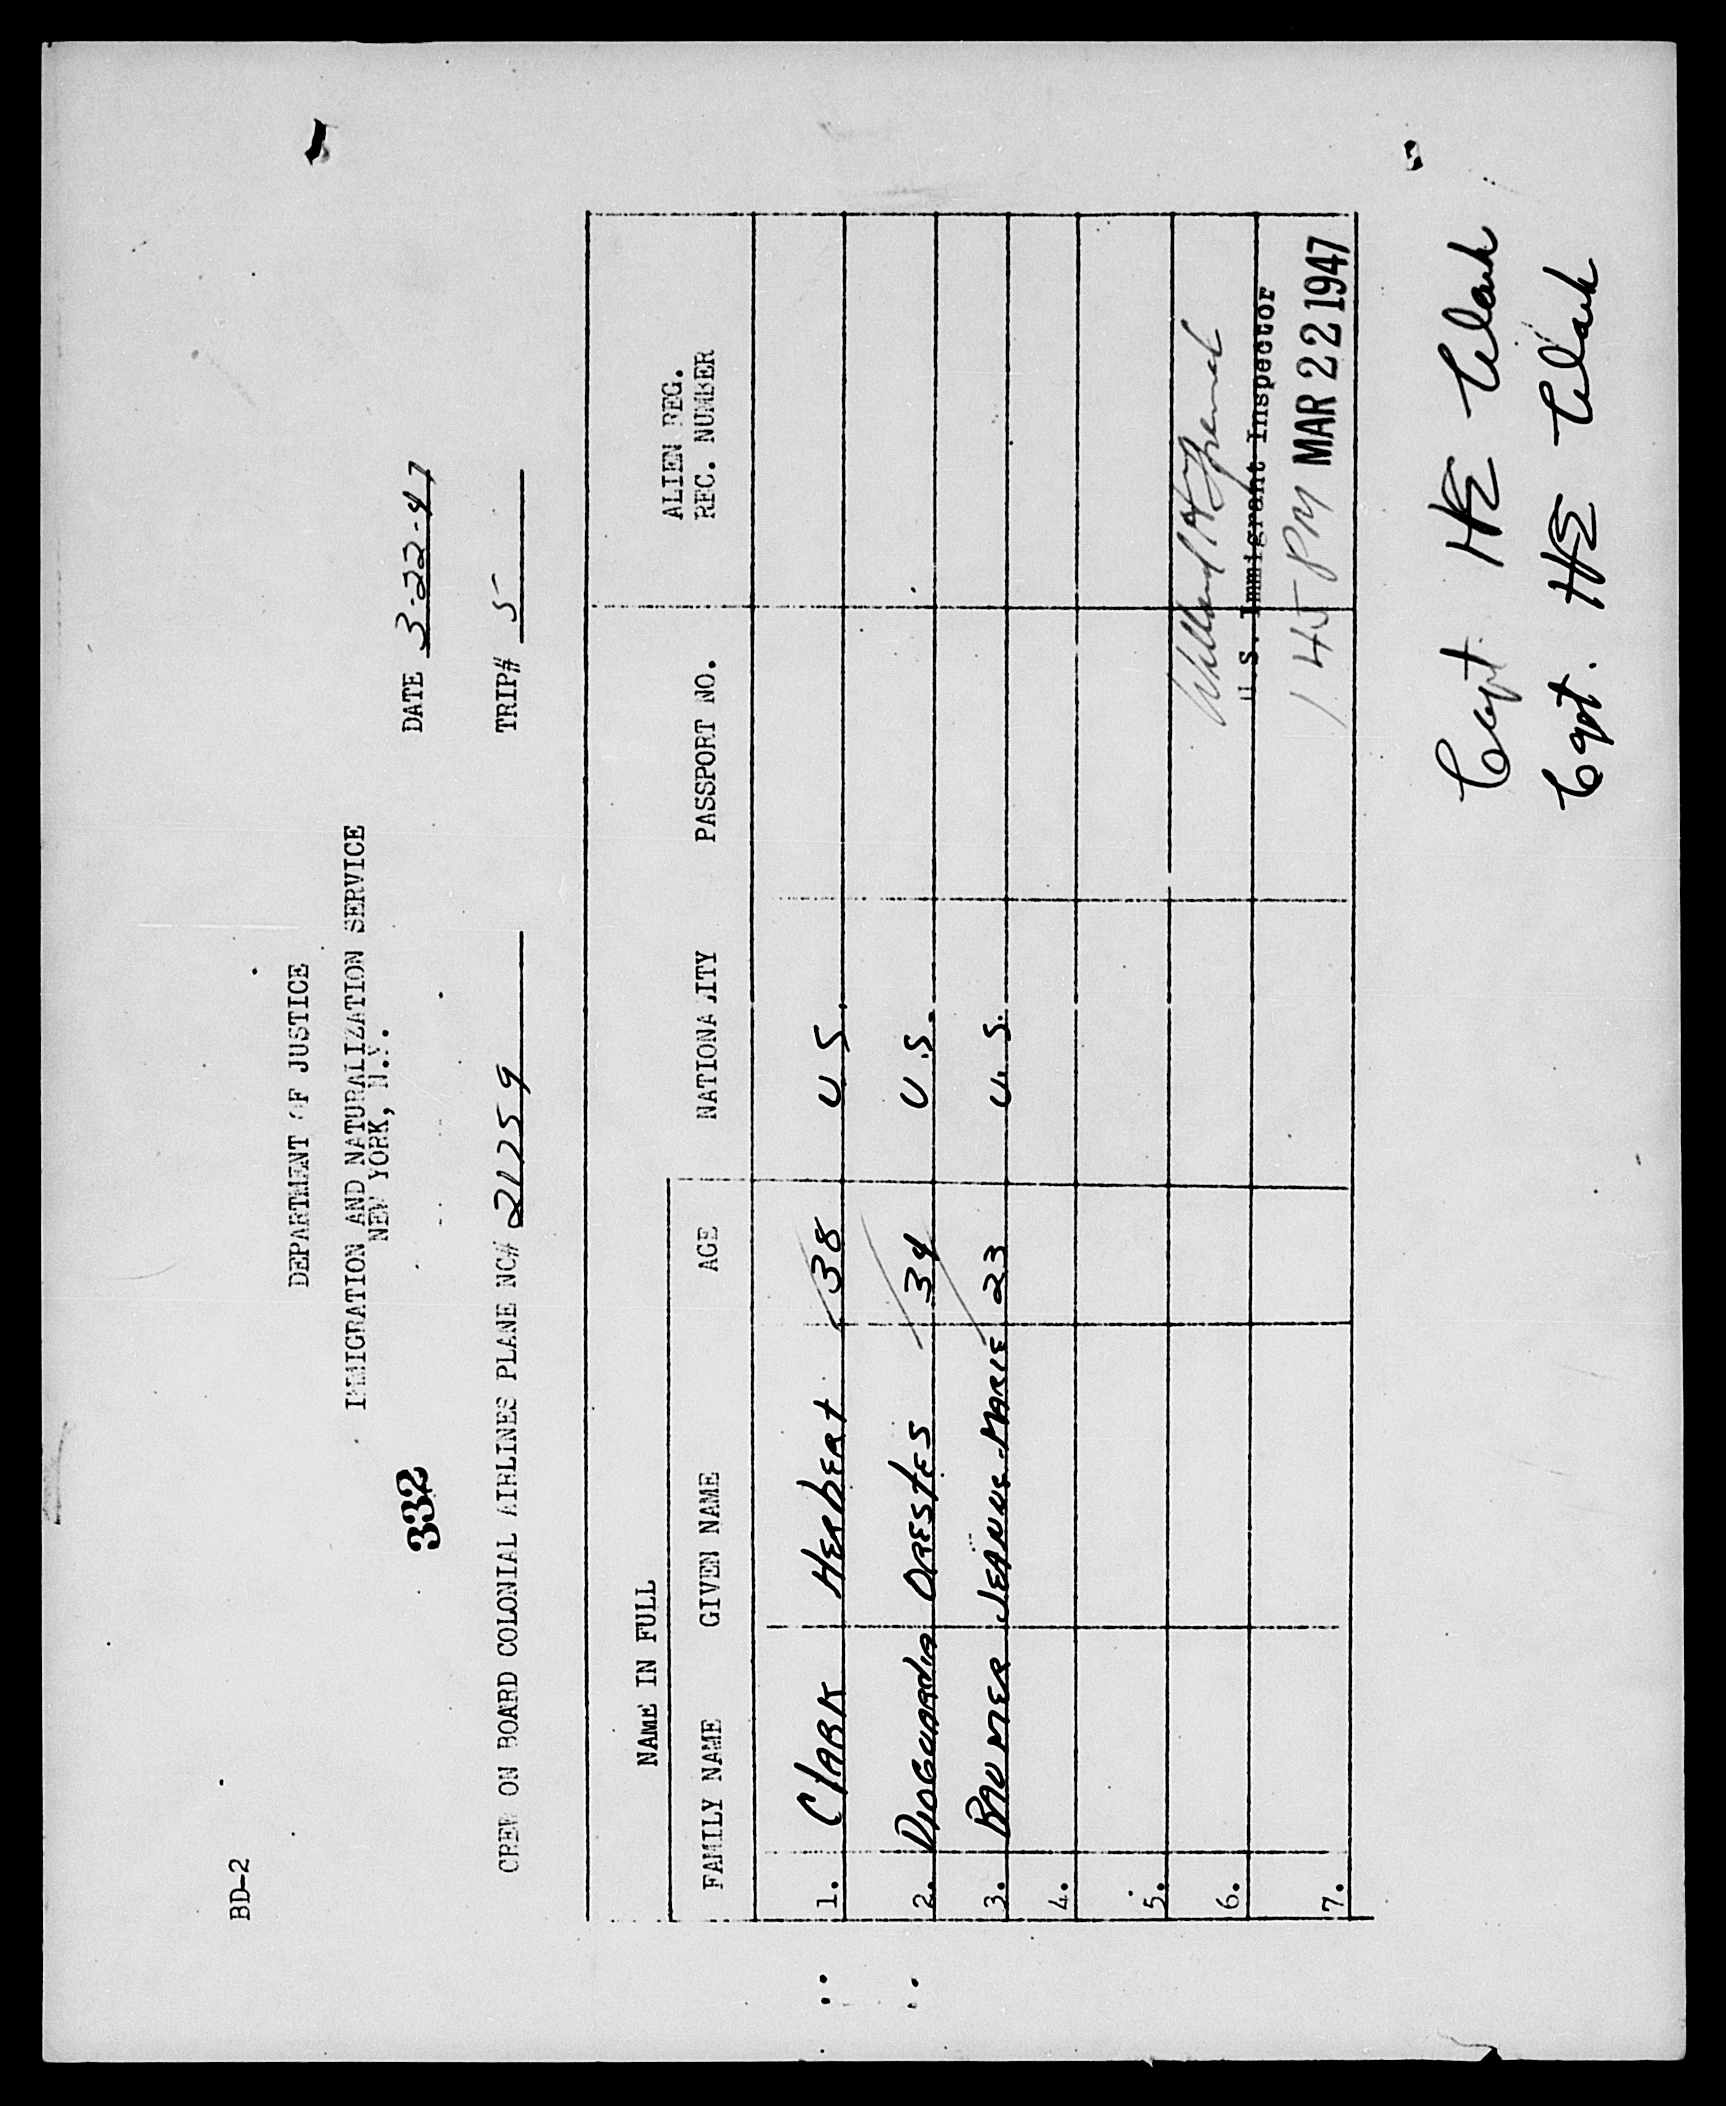 BD-2
DEPARTMENT OF JUSTICE
IMMIGRATION AND NATURALIZATION SERVICE
NEW YORK, N.Y.
332
DATE 3-22-47
CREW ON BOARD COLONIAL AIRLINES PLANE NC# 21759
TRIP# 5
NAME IN FULL
ALIEN REG.
FAMILY NAME GIVEN NAME AGE NATIONALITY PASSPORT NO. REC. NUMBER
1. CLARK HERBERT 38 U.S.
2. DIOGUARDIA ORESTES 34 U.S.
3. JEANNE-MARIE 23 U.S.
4.
5.
6.
U.S. Immigrant Inspector
7. 1 45 PM MAR 22 1947
Capt. HE Clark
Capt. HE Clark